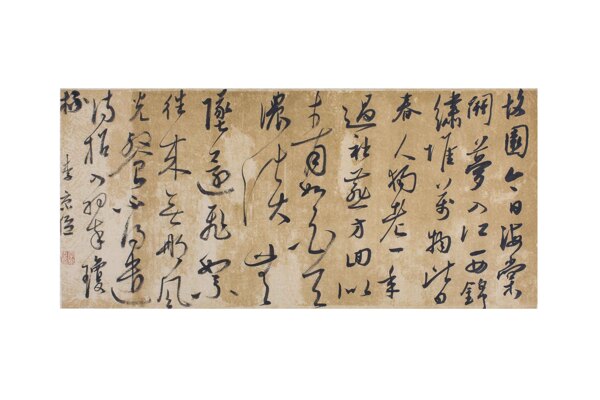 故園今日海棠
開夢入江西錦
繡堆萬物皆
春人獨老一年
過社燕方回似
青如白天
濃淡
墜還飛絮
往來無那風
光餐不得遣
詩招入翠瓊
杯